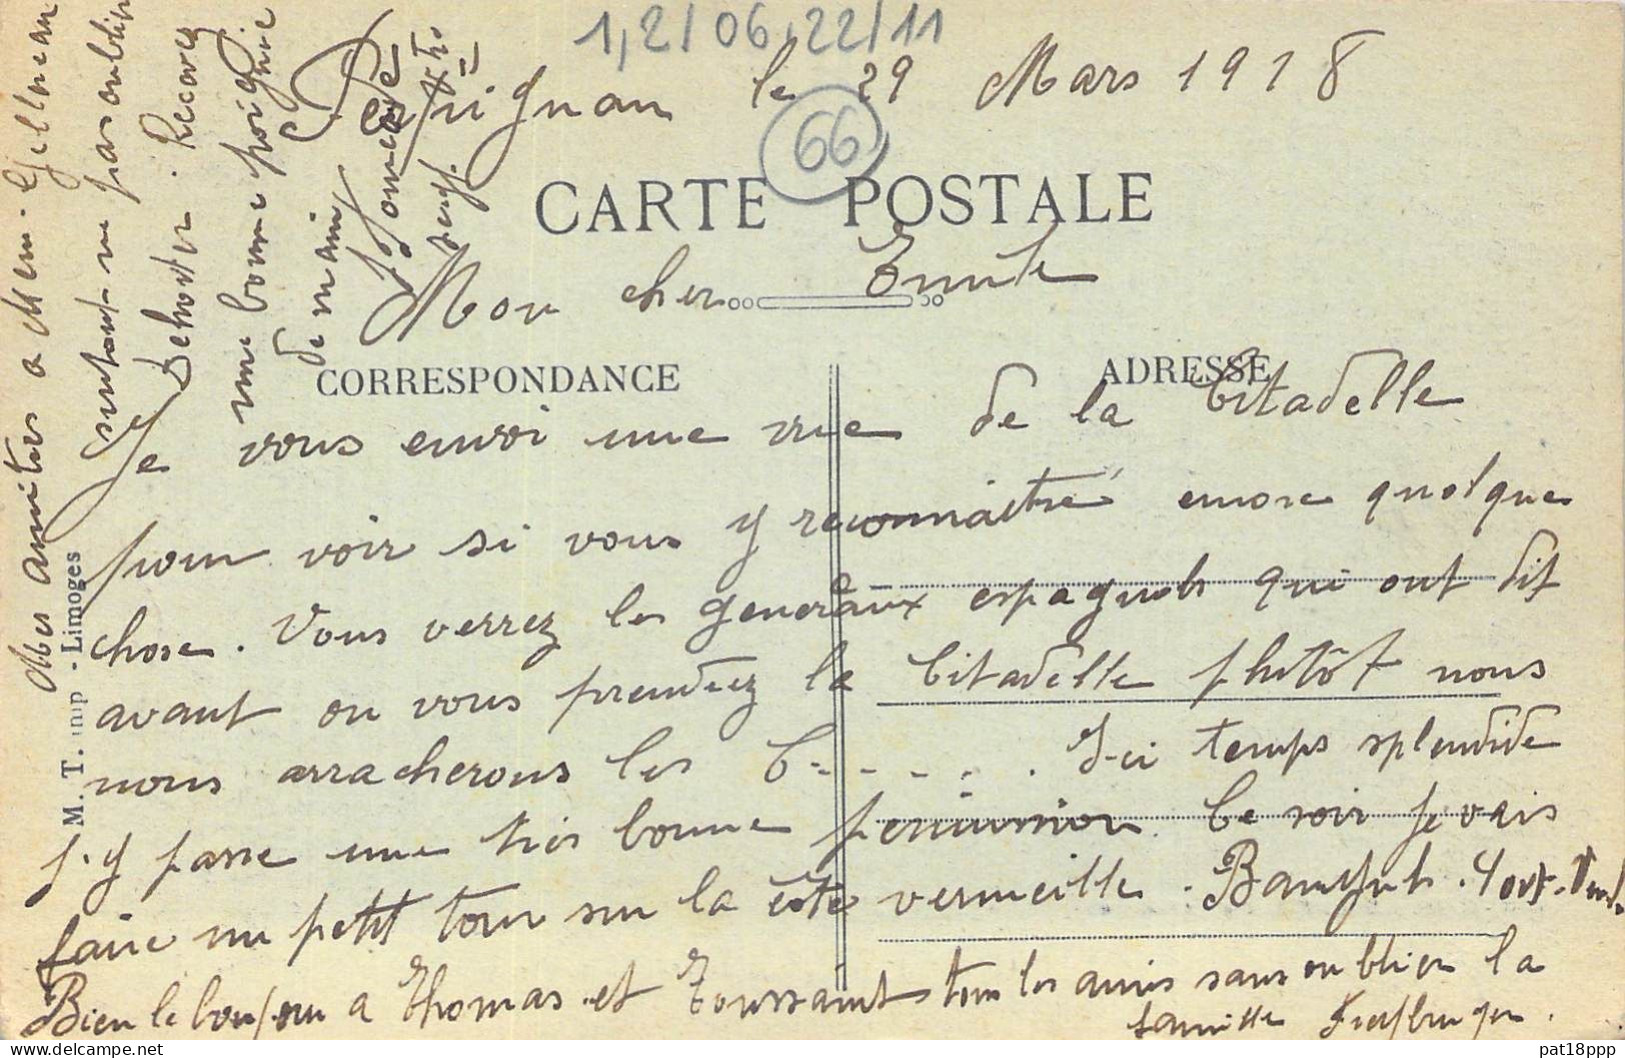 1,2/06,22/11
le 29 Mars 1918
66
CARTE POSTALE
Mon cher Emile
CORRESPONDANCE
ADRESSE
Je vous envoi une vue de la Citadelle
pour voir si vous y reconnaitré encore quelque
chose. Vous verrez les generaux espagnols qui ont dit
avant ou vous prendrez la Citadelle plutôt nous
nous arracherons les C - - - - . Ici temps splendide
j'y passe une très bonne permission. Ce soir je vais
faire un petit tour sur la côte vermeille. Banyuls. Port-Vend.
Bien le bonjour a Thomas et Toussaint tous les amis sans oublier la
famille
Mes amities a Mem.
surtout ne pas oublier
Recevez
une bonne poignée
de main
M. T. imp - Limoges
pat18ppp